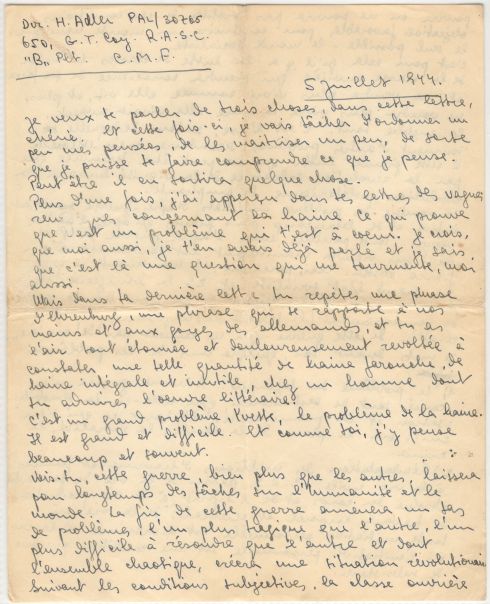 Dvr. H. Adler PAL/30765
650, G. T. Coy. R.A.S.C.
"B" Plt. C.M.F.
5 juillet 1944.
Je veux te parler de trois choses, dans cette lettre,
chérie. Et cette fois-ci, je vais tâcher d'ordonner un
peu mes pensées, de les maîtriser un peu, de sorte
que je puisse te faire comprendre ce que je pense.
Peut être il en sortira quelque chose.
Plus d'une fois, j'ai apperçu dans tes lettres des vagues
concernant la haine. Ce qui prouve
que c'est un problème qui t'est à coeur. Je crois,
que moi aussi, je t'en avais déjà parlé et je sais
que c'est là une question, qui me tourmente, moi
aussi.
Mais dans ta dernière lettre tu répètes une phrase
d'Ehrenburg, une phrase qui se rapporte à nos
mains et aux gorges des allemands, et tu as
l'air tout étonnée et douloureusement revoltée à
constater une telle quantité de haine farouche, de
haine intégrale et inutile, chez un homme dont
tu admires l'oeuvre littéraire.
C'est un grand problème, Yvette, le problème de la haine.
Il est grand et difficile. Et comme toi, j'y pense
beaucoup et souvent.
Vois-tu, cette guerre, bien plus que les autres, laissera
pour longtemps des tâches sur l'humanité et le
monde. La fin de cette guerre amènera un tas
de problèmes, l'un plus tragique que l'autre, l'un
plus difficile à résoudre que l'autre et dont
l'ensemble chaotique, créera une situation révolutionnaire
Suivant les conditions subjectives, la classe ouvrière